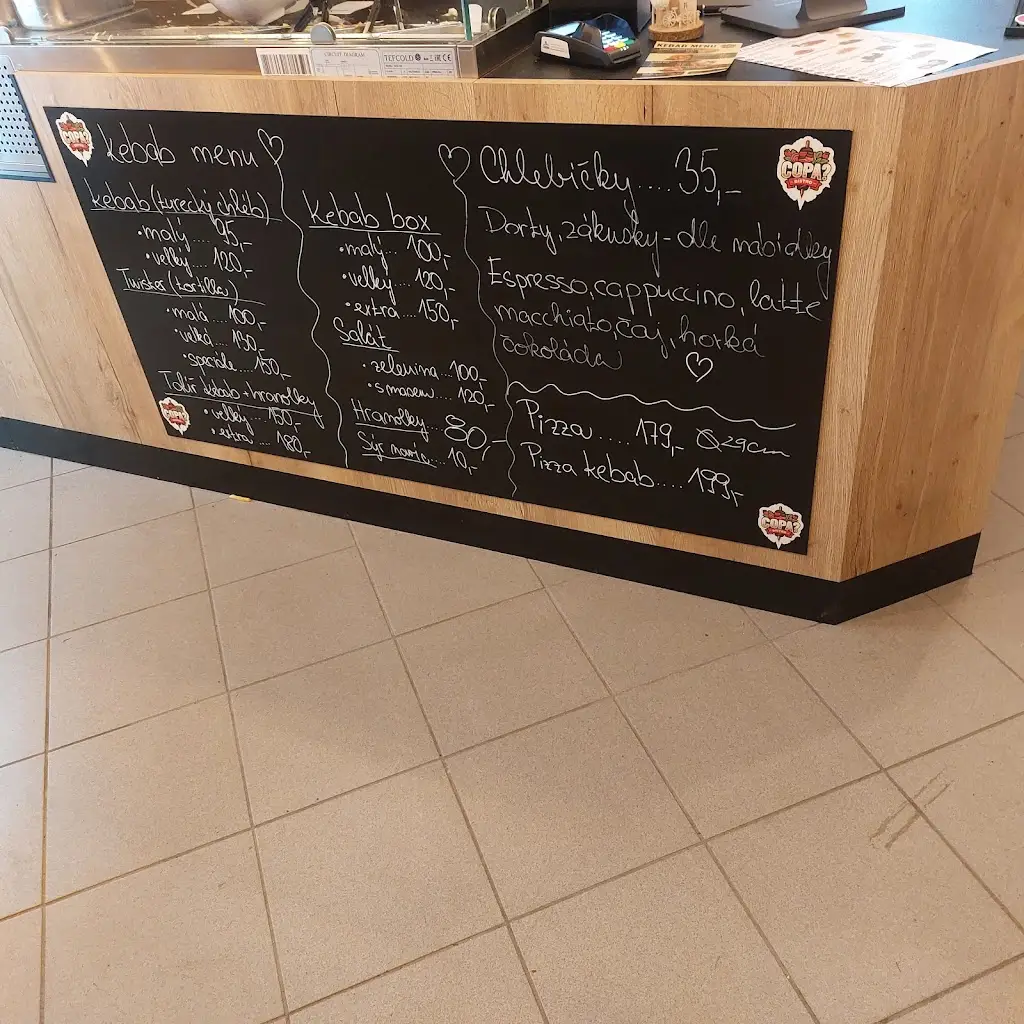 TEFCOLD
KEBAB MENU
COPA?
kebab menu
kebab (turecký chléb)
• malý.... 95,-
• velký.... 120,-
Twister (tortilla)
• malá.... 100,-
• velká.... 130,-
• speciále.... 150,-
Talíř kebab + hranolky
• velký.... 150,-
• extra.... 180,-
COPA?
Kebab box
• malý... 100,-
• velký.... 120,-
• extra.... 150,-
Salát
• zelenina...100,-
• s masem.. 120,-
Hranolky.... 80,-
Sýr navíc... 10,-
Chlebíčky.... 35,-
COPA?
BISTRO
Dorty, zákusky - dle nabídky
Espresso, cappuccino, latte
macchiato, čaj, horká
čokoláda
Pizza..... 179,- Ø 29cm
Pizza kebab.... 199,-
COPA?